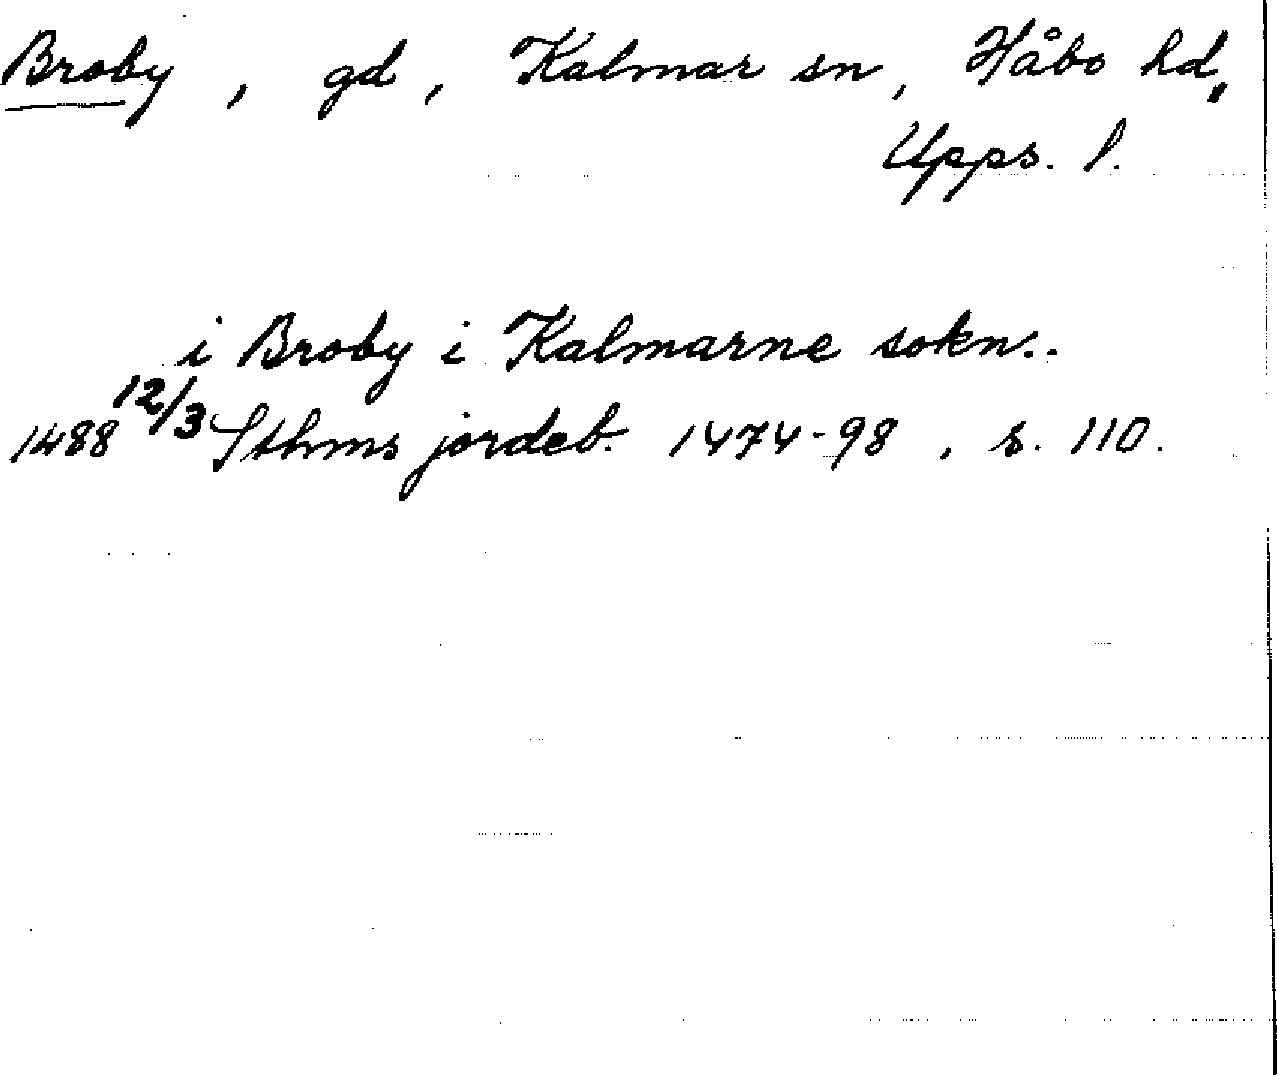 Broby, gd, Kalmar sn, Håbo hd,
Upps. l.
i Broby i Kalmarne sokn..
1488 12/3 Sthms jordeb. 1474-98, s. 110.